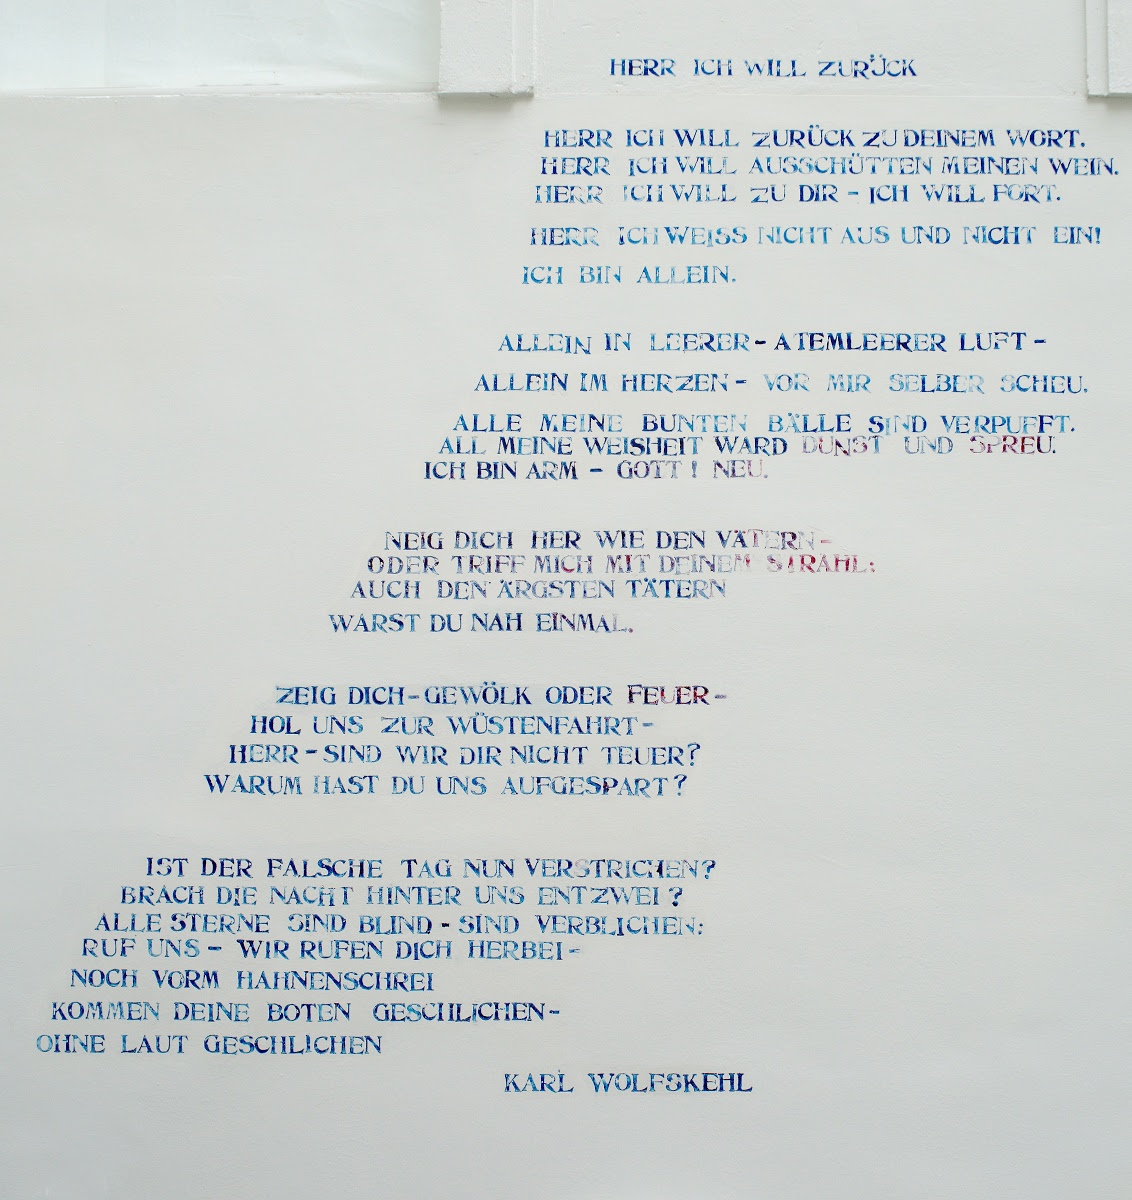 HERR ICH WILL ZURÜCK
HERR ICH WILL ZURÜCK ZU DEINEM WORT.
HERR ICH WILL AUSSCHÜTTEN MEINEN WEIN.
HERR ICH WILL ZU DIR - ICH WILL FORT.
HERR ICH WEISS NICHT AUS UND NICHT EIN!
ICH BIN ALLEIN.
ALLEIN IN LEERER - ATEMLEERER LUFT -
ALLEIN IM HERZEN - VOR MIR SELBER SCHEU.
ALLE MEINE BUNTEN BÄLLE SIND VERPUFFT.
ALL MEINE WEISHEIT WARD DUNST UND SPREU.
ICH BIN ARM - GOTT! NEU.
NEIG DICH HER WIE DEN VÄTERN -
ODER TRIFF MICH MIT DEINEM STRAHL:
AUCH DEN ÄRGSTEN TÄTERN
WARST DU NAH EINMAL.
ZEIG DICH - GEWÖLK ODER FEUER -
HOL UNS ZUR WÜSTENFAHRT -
HERR - SIND WIR DIR NICHT TEUER?
WARUM HAST DU UNS AUFGESPART?
IST DER FALSCHE TAG NUN VERSTRICHEN?
BRACH DIE NACHT HINTER UNS ENTZWEI?
ALLE STERNE SIND BLIND - SIND VERBLICHEN:
RUF UNS - WIR RUFEN DICH HERBEI -
NOCH VORM HAHNENSCHREI
KOMMEN DEINE BOTEN GESCHLICHEN -
OHNE LAUT GESCHLICHEN
KARL WOLFSKEHL